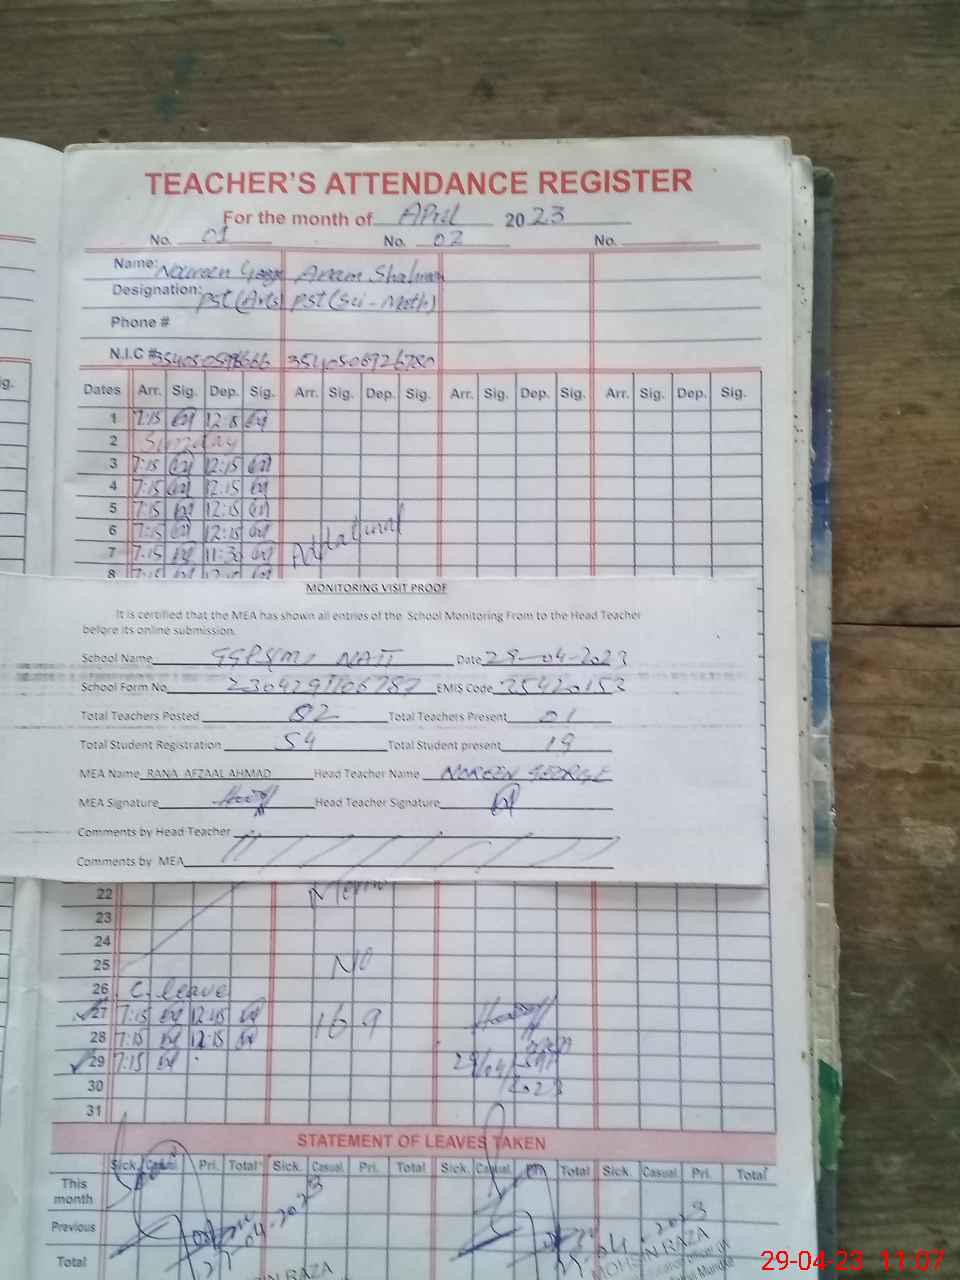 TEACHER'S ATTENDANCE REGISTER
For the month of April 2023
No. 01 No. 02 No.
Name: Noureen George Anam Shahmon
Designation: PST(Arts) PST(Sci-Math)
Phone #
N.I.C # 3540506726780
Dates Arr. Sig. Dep. Sig. Arr. Sig. Dep. Sig. Arr. Sig. Dep. Sig. Arr. Sig. Dep. Sig.
1 7:15
2 Sunday
3 7:15 12:15
4 7:15 12:15
5 7:15 12:15
6 7:15 12:15
7 7:15 11:30
8 7:15
MONITORING VISIT PROOF
It is certified that the MEA has shown all entries of the School Monitoring From to the Head Teacher
before its online submission.
School Name NATT Date 29-04-2023
School Form No EMIS Code 35420153
Total Teachers Posted 02 Total Teachers Present 01
Total Student Registration 54 Total Student present 19
MEA Name RANA AFZAAL AHMAD Head Teacher Name NOREEN GEORGE
MEA Signature Head Teacher Signature
Comments by Head Teacher
Comments by MEA
22
23
24
25 No
26 C. leave
27 7:15 12:15 169
28 7:15 12:15
29 7:15 29/04/2023
30
31
STATEMENT OF LEAVES TAKEN
Sick. Casual Pri. Total Sick. Casual Pri. Total Sick. Casual Total Sick. Casual Pri. Total
This month
Previous
Total
MOHSIN RAZA
29-04-23 11:07